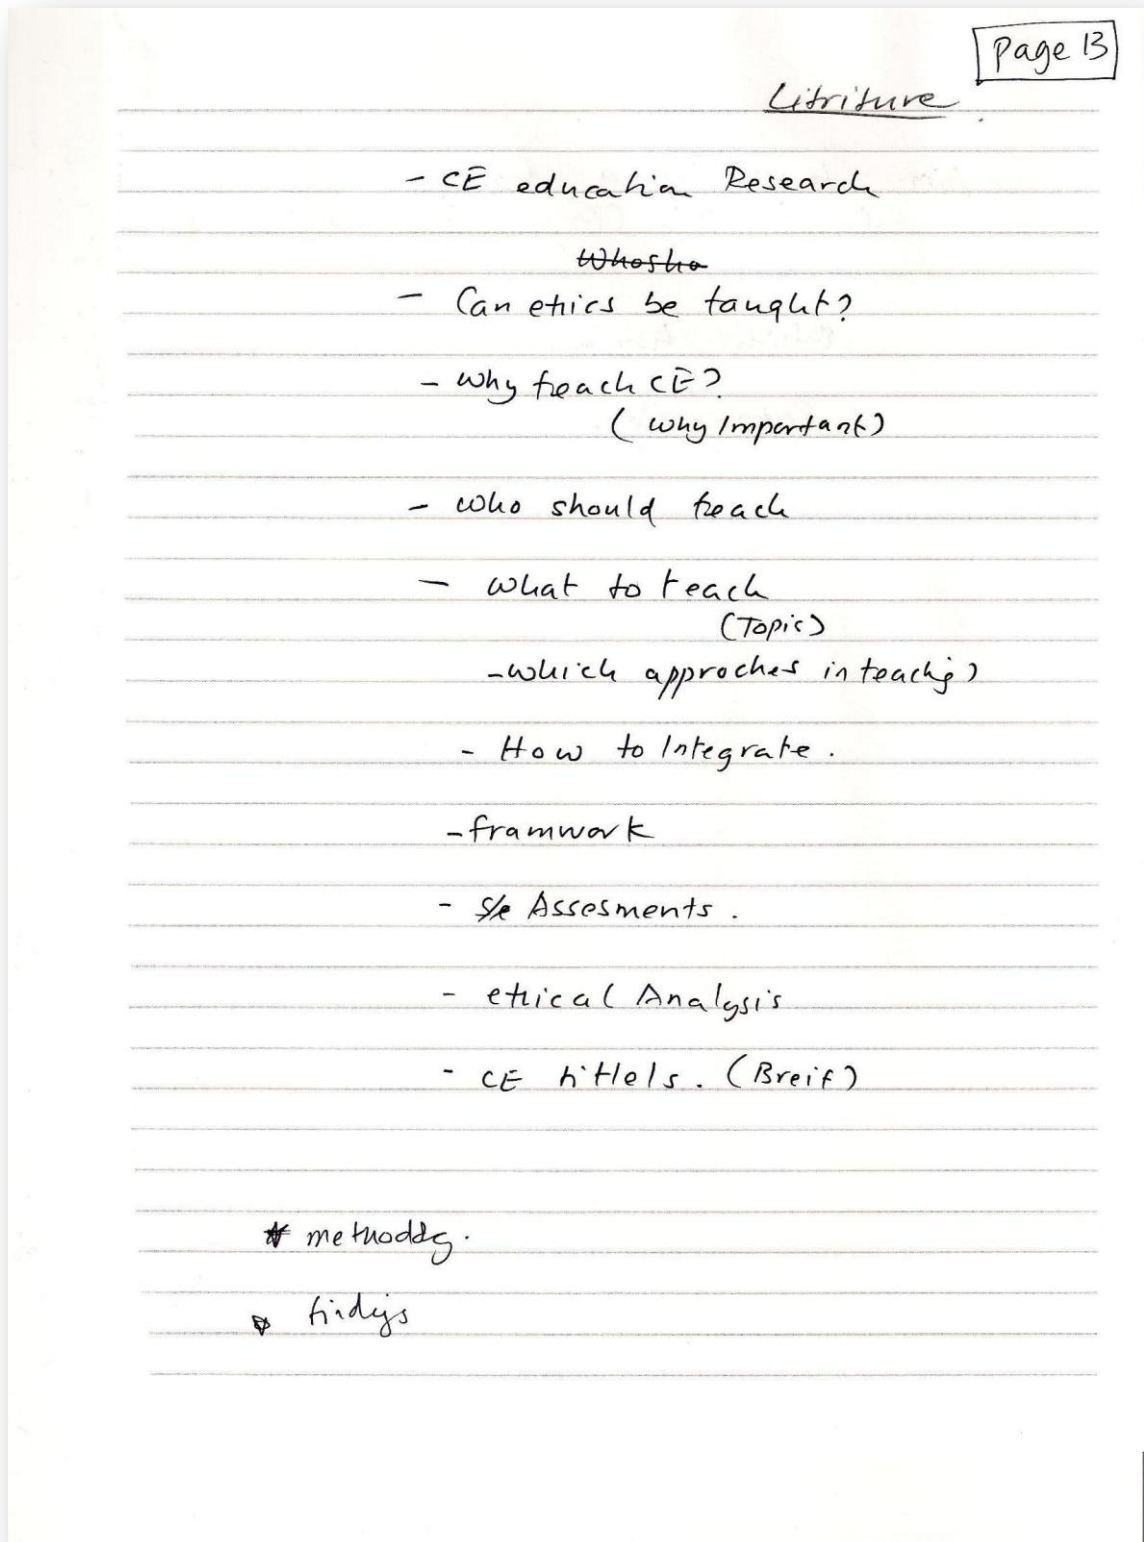 Page 13
Litriture
- CE education Research
Whosho
- Can ethics be taught?
- Why teach CE?
(Why Important)
- who should teach
- What to teach
(Topic)
- which approches in teachig)
- How to Integrate.
- framwork
- Assesments.
- ethical Analysis
- CE tittels. (Breif)
* methodolg.
* findigs